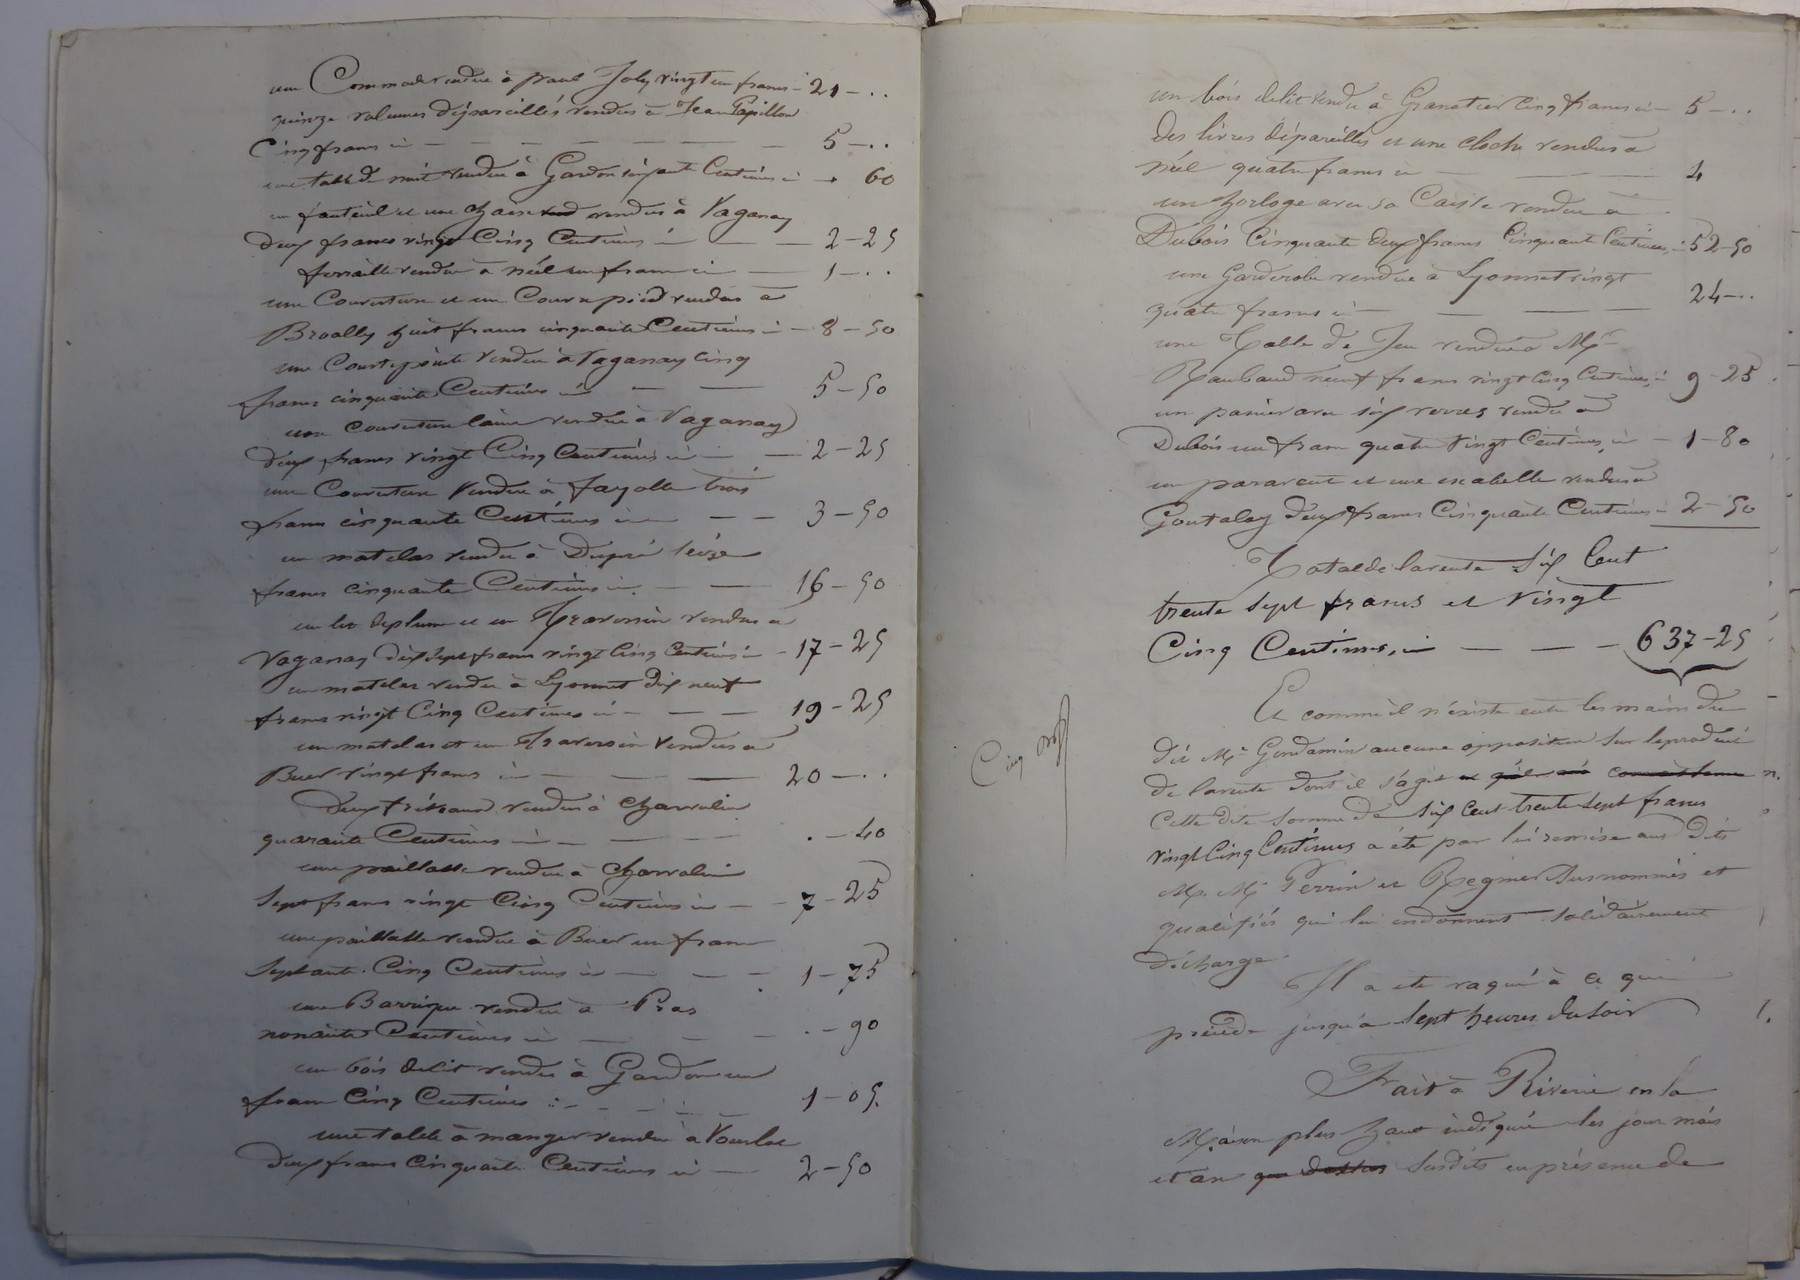 une Commode vendue à paul Joly vingt un francs - 21 - ..
quinze volumes dépareillés vendus à Jean Papillon
Cinq francs ci — — — — — — 5 - ..
une table de nuit vendue à Gardon soixante Centimes ci - . 60
un fauteuil et une chaise vendus à Vaganay
deux francs vingt Cinq Centimes ci — — 2 - 25
ferraille vendue à néel un franc ci — 1 - ..
une Couverture et un Couvre pied vendus à
Broally huit francs cinquante Centimes ci - 8 - 50
une Courtepointe vendue à Vaganay Cinq
francs cinquante Centimes ci — — 5 - 50
une couverture laine vendue à Vaganay
deux francs vingt Cinq Centimes ci — — 2 - 25
une Couverture Vendue à fayolle trois
francs cinquante Centimes ci — — 3 - 50
un matelas vendu à Dupré Seize
francs cinquante Centimes ci. — — 16 - 50
un lit deplume et un Traversin vendus à
Vaganay dix Sept francs vingt Cinq Centimes ci - 17 - 25
un matelas vendu à Lyonnet dix neuf
francs vingt Cinq Centimes ci — — — 19 - 25
un matelas et un Traversin Vendus à
Buer vingt francs ci — — — 20 - ..
deux vendus à charvolin
quarante Centimes ci — — — . - 40
une paillasse vendue à charvolin
Sept francs vingt Cinq Centimes ci — - 7 - 25
une paillasse vendue à Buer un franc
Septante Cinq Centimes ci — — - 1 - 75
une Barrique vendue à Pras
nonante Centimes ci — — - . - 90
un bois delit vendu à Gardon un
franc Cinq Centimes : - - - - 1 - 05.
une table à manger vendue à
deux francs Cinquante Centimes ci — 2 - 50
un bois delit vendu à Granotier Cinq francs ci - 5 - ..
des livres dépareillés et une cloche vendus à
néel quatre francs ci — — — 4
un horloge avec sa Caisse vendue à
Dubois Cinquante deux francs Cinquante Centimes - 52 - 50
une Garderobe vendue à Lyonnet vingt
quatre francs ci — — — — 24 - ..
une Table de Jeu vendue à Mr
Raubaud neuf francs vingt Cinq Centimes ci 9 - 25
un panier avec six verres vendu à
Dubois un franc quatre Vingt Centimes, ci - 1 - 80
un paravent et une escabelle vendus à
Goutalay deux francs Cinquante Centimes - 2 - 50
Total de la vente Six Cent
trente Sept francs et Vingt
Cinq Centimes, ci — — — 637 - 25
Et comme il n'existe entre les mains du
dit Mr Gondamin aucune opposition Sur le produit
de la vente dont il s'agit
Cette dite Somme de Six Cent trente Sept francs
vingt Cinq Centimes a été par lui remise aux dits
M. Mr Perrin et Regnier Susnommés et
qualifiés qui lui en donnent solidairement
décharge.
Cinq
Il a été vaqué à ce qui
précède jusqu'à Sept heures du Soir
Fait à Riverie en la
Maison plus haut indiquée les jour mois
et an que dessus Susdits en présence de